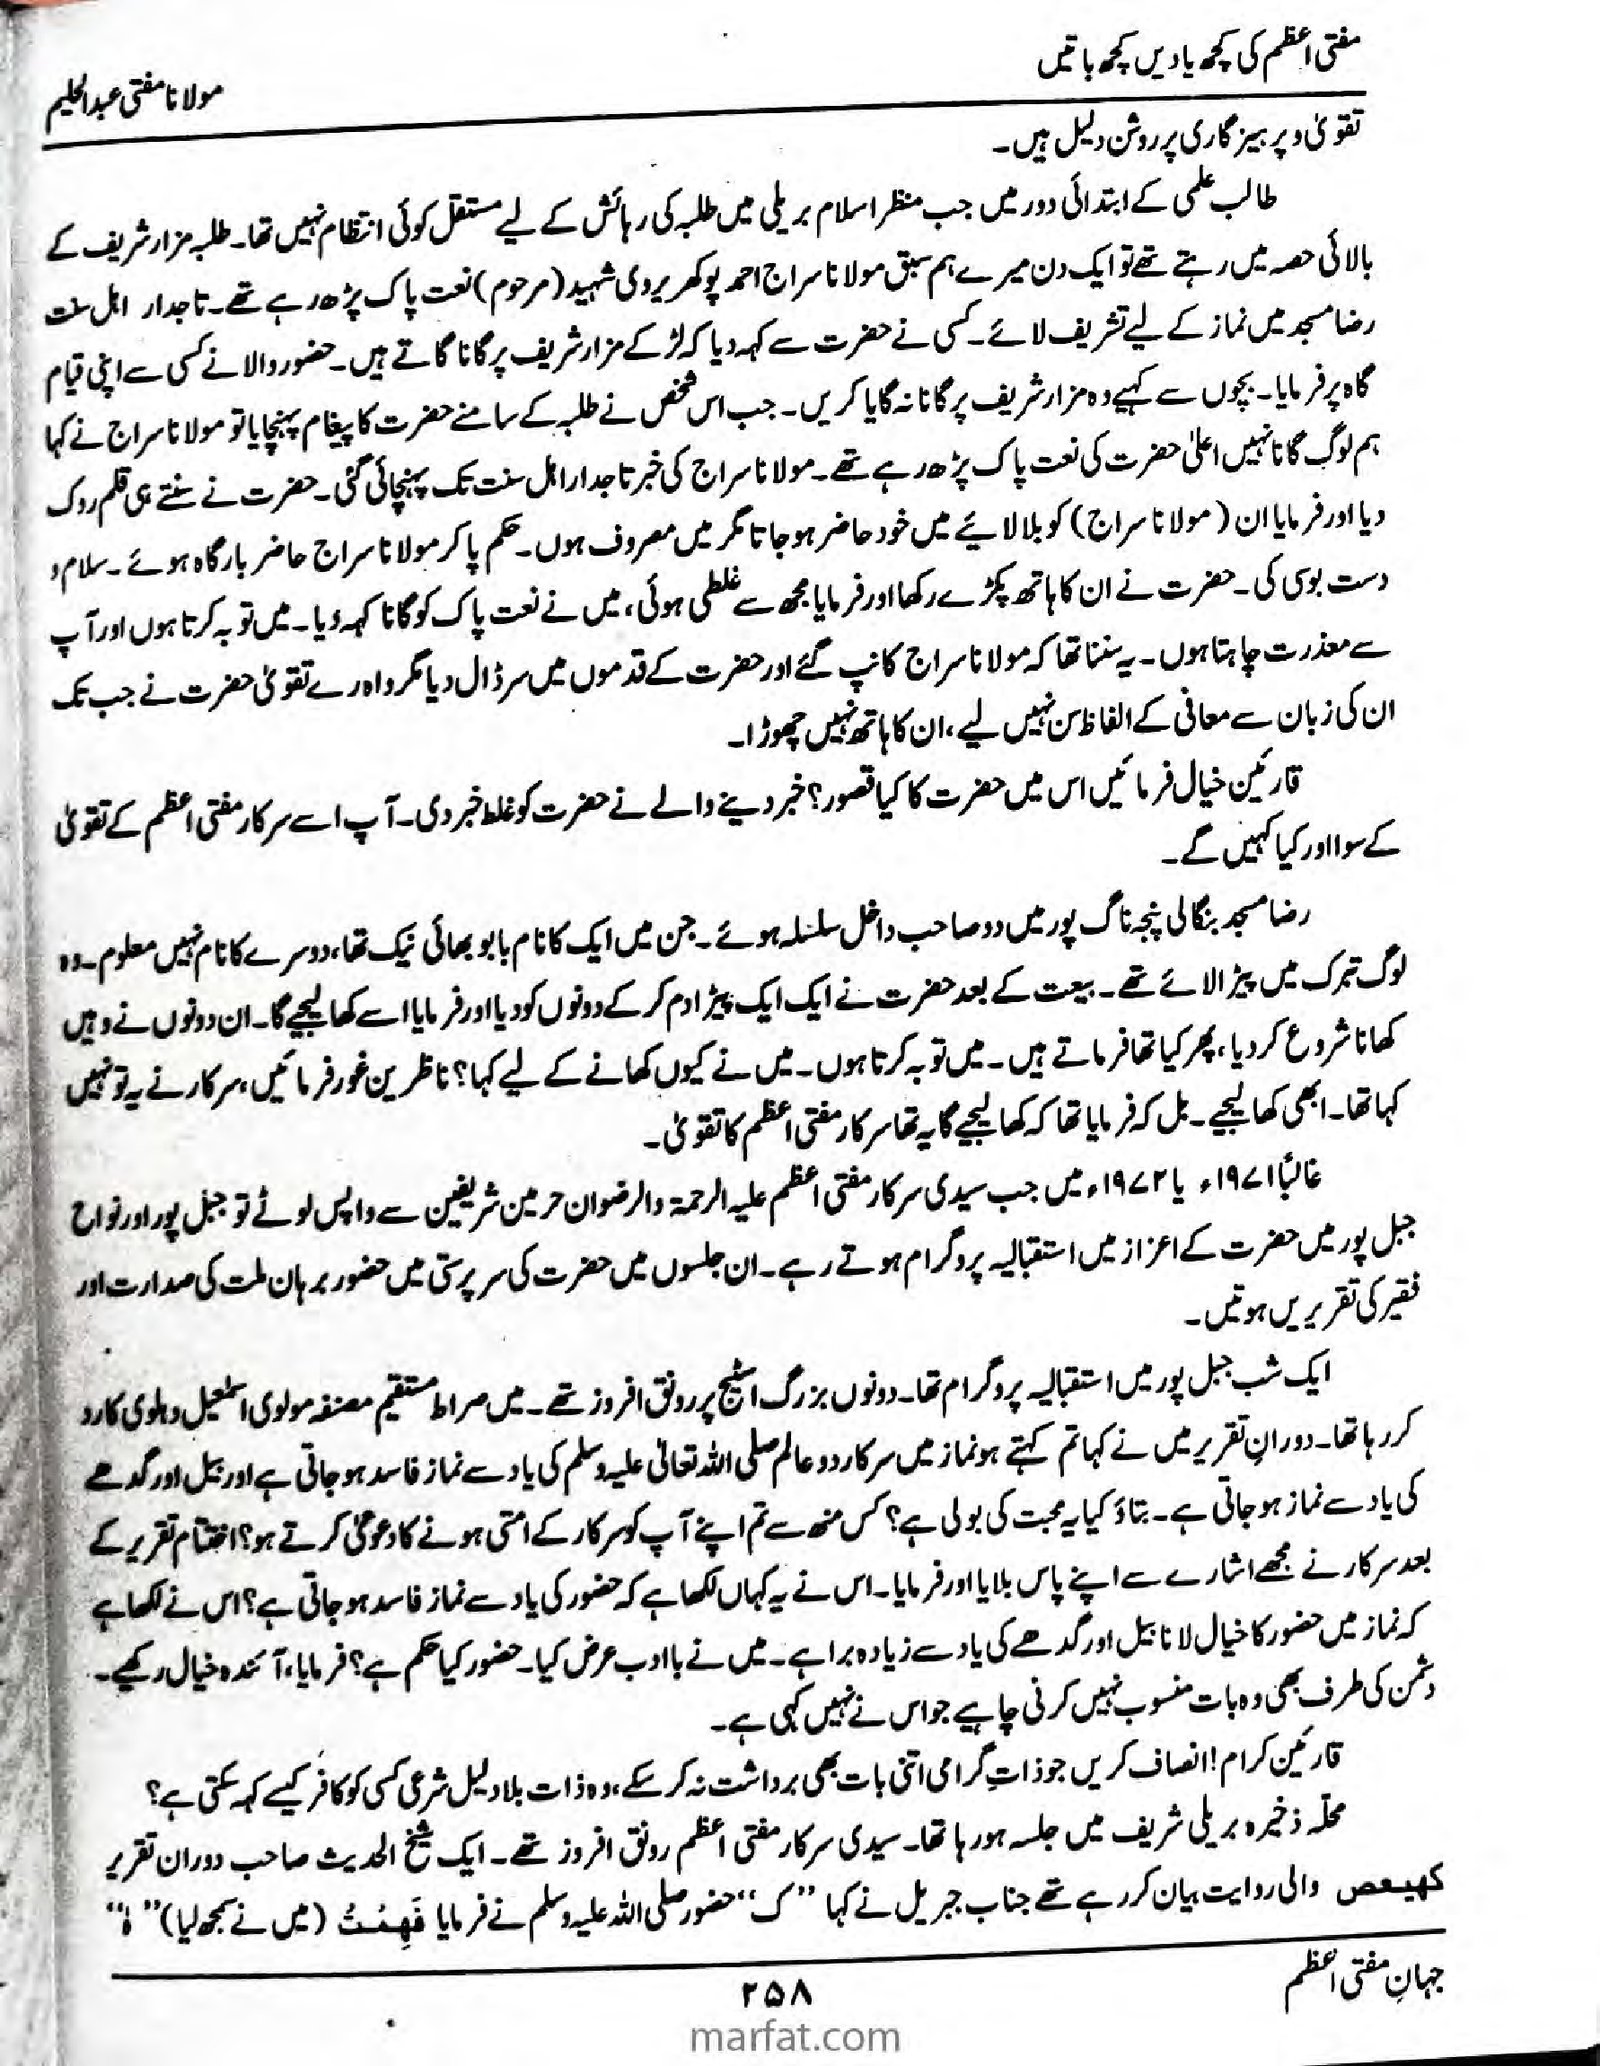 مفتی اعظم کی کچھ یادیں کچھ باتیں
مولانا مفتی عبدالحلیم
تقویٰ و پرہیزگاری پر روشن دلیل ہیں۔
طالب علمی کے ابتدائی دور میں جب منظر اسلام بریلی میں طلبہ کی رہائش کے لیے مستقل کوئی انتظام نہیں تھا۔ طلبہ مزار شریف کے
بالائی حصہ میں رہتے تھے تو ایک دن میرے ہم سبق مولانا سراج احمد پوکھریروی شہید (مرحوم) نعت پاک پڑھ رہے تھے۔ تاجدار اہل سنت
رضا مسجد میں نماز کے لیے تشریف لائے۔ کسی نے حضرت سے کہہ دیا کہ لڑکے مزار شریف پر گانا گاتے ہیں۔ حضور والا نے کسی سے اپنی قیام
گاہ پر فرمایا۔ بچوں سے کہیے وہ مزار شریف پر گانا نہ گایا کریں۔ جب اس شخص نے طلبہ کے سامنے حضرت کا پیغام پہنچایا تو مولانا سراج نے کہا
ہم لوگ گانا نہیں اعلیٰ حضرت کی نعت پاک پڑھ رہے تھے۔ مولانا سراج کی خبر تاجدار اہل سنت تک پہنچائی گئی۔ حضرت نے سنتے ہی قلم روک
دیا اور فرمایا ان (مولانا سراج) کو بلا لائیے میں خود حاضر ہو جاتا مگر میں مصروف ہوں۔ حکم پا کر مولانا سراج حاضر بارگاہ ہوئے۔ سلام و
دست بوسی کی۔ حضرت نے ان کا ہاتھ پکڑے رکھا اور فرمایا مجھ سے غلطی ہوئی، میں نے نعت پاک کو گانا کہہ دیا۔ میں توبہ کرتا ہوں اور آپ
سے معذرت چاہتا ہوں۔ یہ سننا تھا کہ مولانا سراج کانپ گئے اور حضرت کے قدموں میں سر ڈال دیا مگر واہ رے تقویٰ حضرت نے جب تک
ان کی زبان سے معافی کے الفاظ سن نہیں لیے، ان کا ہاتھ نہیں چھوڑا۔
قارئین خیال فرمائیں اس میں حضرت کا کیا قصور؟ خبر دینے والے نے حضرت کو غلط خبر دی۔ آپ اسے سرکار مفتی اعظم کے تقویٰ
کے سوا اور کیا کہیں گے۔
رضا مسجد بنگالی پنجہ ناگ پور میں دو صاحب داخل سلسلہ ہوئے۔ جن میں ایک کا نام بابو بھائی نیک تھا، دوسرے کا نام نہیں معلوم۔ وہ
لوگ تبرک میں پیڑا لائے تھے۔ بیعت کے بعد حضرت نے ایک ایک پیڑا دم کر کے دونوں کو دیا اور فرمایا اسے کھا لیجیے گا۔ ان دونوں نے وہیں
کھانا شروع کر دیا، پھر کیا تھا فرماتے ہیں۔ میں توبہ کرتا ہوں۔ میں نے کیوں کھانے کے لیے کہا؟ ناظرین غور فرمائیں، سرکار نے یہ تو نہیں
کہا تھا۔ ابھی کھا لیجیے۔ بل کہ فرمایا تھا کہ کھا لیجیے گا یہ تھا سرکار مفتی اعظم کا تقویٰ۔
غالباً ۱۹۷۱ء یا ۱۹۷۲ء میں جب سیدی سرکار مفتی اعظم علیہ الرحمۃ والرضوان حرمین شریفین سے واپس لوٹے تو جبل پور اور نواح
جبل پور میں حضرت کے اعزاز میں استقبالیہ پروگرام ہوتے رہے۔ ان جلسوں میں حضرت کی سرپرستی میں حضور برہان ملت کی صدارت اور
فقیر کی تقریریں ہوتیں۔
ایک شب جبل پور میں استقبالیہ پروگرام تھا۔ دونوں بزرگ اسٹیج پر رونق افروز تھے۔ میں صراط مستقیم مصنفہ مولوی اسمٰعیل دہلوی کا رد
کر رہا تھا۔ دورانِ تقریر میں نے کہا تم کہتے ہو نماز میں سرکار دو عالم صلی اللہ تعالیٰ علیہ وسلم کی یاد سے نماز فاسد ہو جاتی ہے اور بیل اور گدھے
کی یاد سے نماز ہو جاتی ہے۔ بتاؤ کیا یہ محبت کی بولی ہے؟ کس منھ سے تم اپنے آپ کو سرکار کے امتی ہونے کا دعویٰ کرتے ہو؟ اختتام تقریر کے
بعد سرکار نے مجھے اشارے سے اپنے پاس بلایا اور فرمایا۔ اس نے یہ کہاں لکھا ہے کہ حضور کی یاد سے نماز فاسد ہو جاتی ہے؟ اس نے لکھا ہے
کہ نماز میں حضور کا خیال لانا بیل اور گدھے کی یاد سے زیادہ برا ہے۔ میں نے باادب عرض کیا۔ حضور کیا حکم ہے؟ فرمایا، آئندہ خیال رکھیے۔
دشمن کی طرف بھی وہ بات منسوب نہیں کرنی چاہیے جو اس نے نہیں کہی ہے۔
قارئین کرام! انصاف کریں جو ذاتِ گرامی اتنی بات بھی برداشت نہ کر سکے، وہ ذات بلا دلیل شرعی کسی کو کافر کیسے کہہ سکتی ہے؟
محلّہ ذخیرہ بریلی شریف میں جلسہ ہو رہا تھا۔ سیدی سرکار مفتی اعظم رونق افروز تھے۔ ایک شیخ الحدیث صاحب دوران تقریر
کھیعص والی روایت بیان کر رہے تھے جناب جبریل نے کہا ”ک“ حضور صلی اللہ علیہ وسلم نے فرمایا فَهِمْتُ (میں نے سمجھ لیا) ”ہٰ“
جہانِ مفتی اعظم
۲۵۸
marfat.com